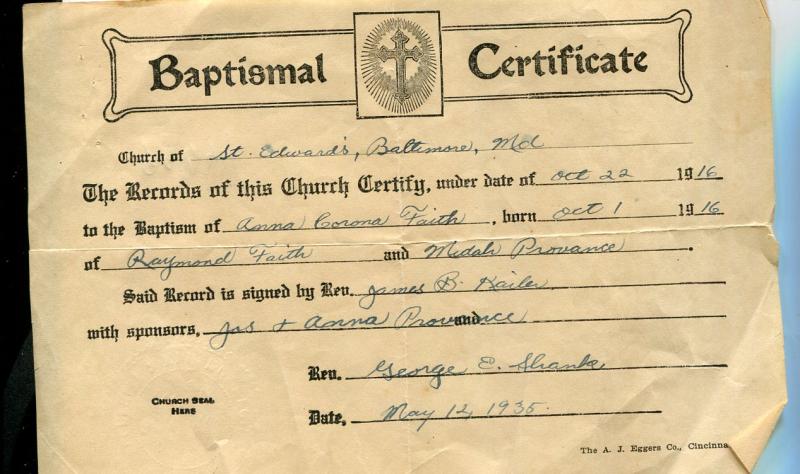 Baptismal Certificate
Church of St. Edward's, Baltimore, Md
The Records of this Church Certify, under date of Oct 22 1916
to the Baptism of Anna Corona Faith, born Oct 1 1916
of Raymond Faith and Midah Provance.
Said Record is signed by Rev. James B. Kailer
with sponsors, Jas & Anna Provance and
Rev. George E. Shank
Church Seal
Here
Date, May 12, 1935.
The A. J. Eggers Co., Cincinna